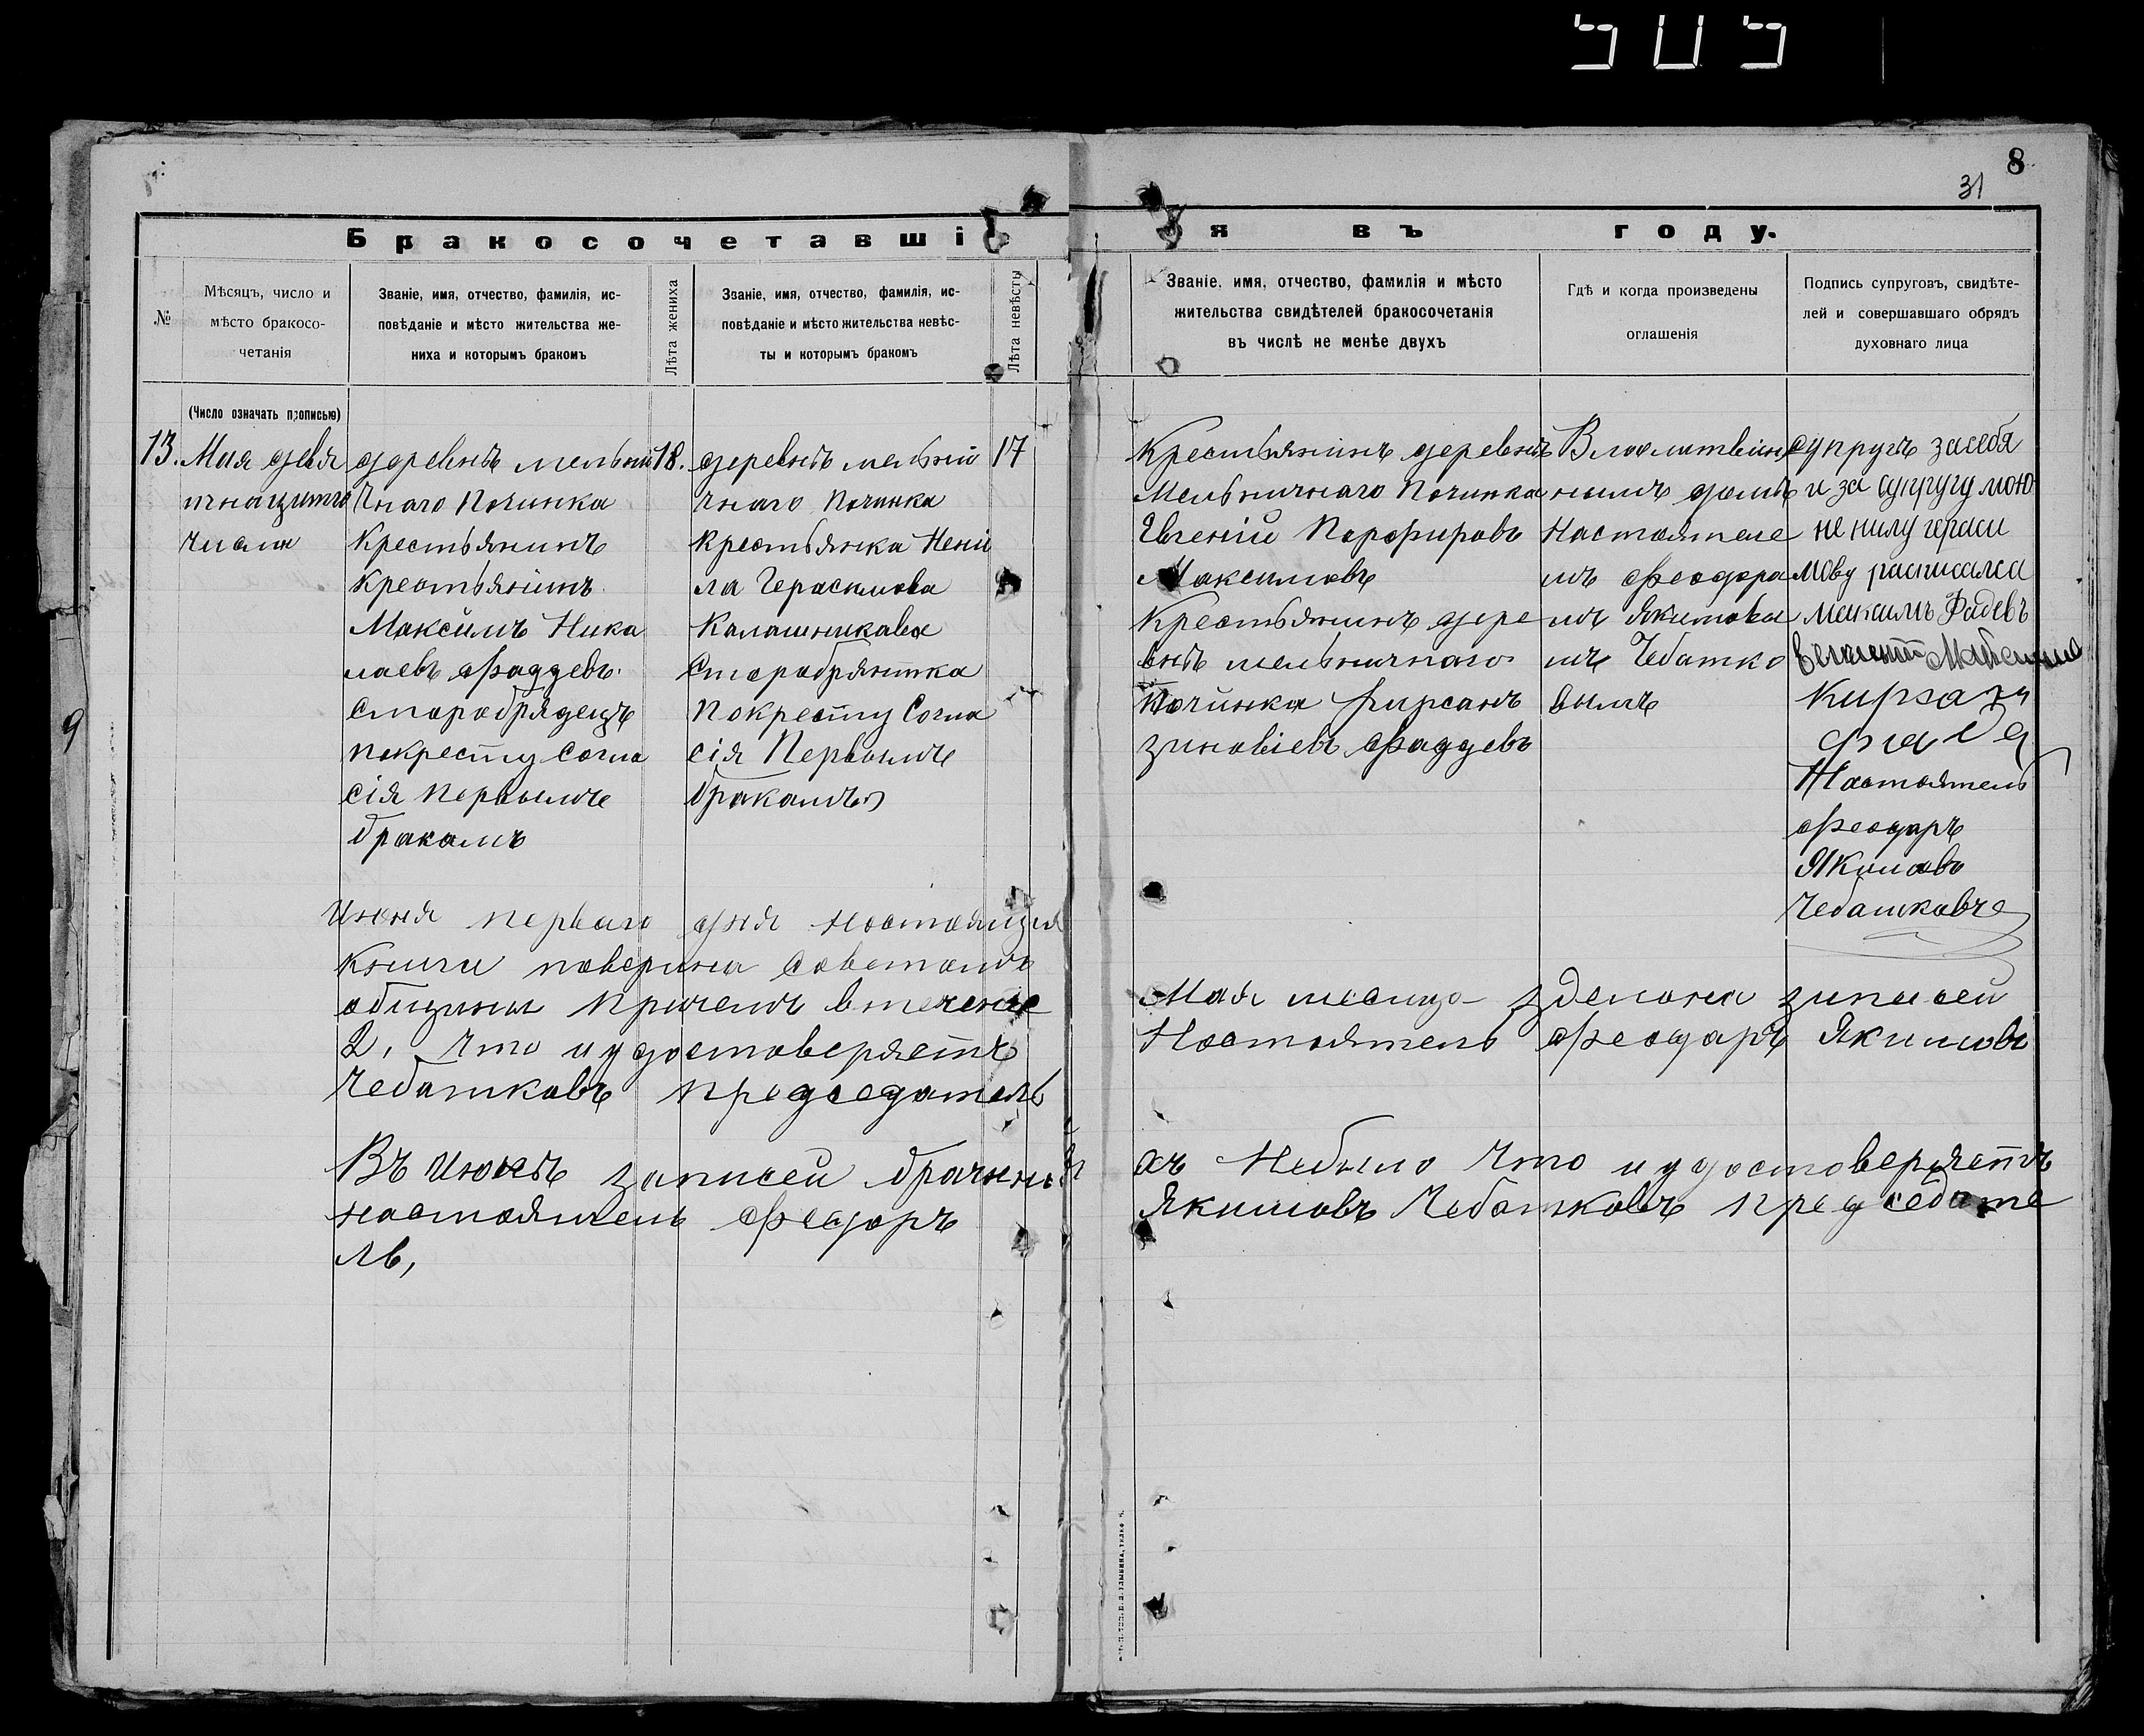 505
8
31
Бракосочетавшіяся въ году.
№
Мѣсяцъ, число и
мѣсто бракосо-
четанія
Званіе, имя, отчество, фамилія, ис-
повѣданіе и мѣсто жительства же-
ниха и которымъ бракомъ
Лѣта жениха
Званіе, имя, отчество, фамилія, ис-
повѣданіе и мѣсто жительства невѣс-
ты и которымъ бракомъ
Лѣта невѣсты
Званіе, имя, отчество, фамилія и мѣсто
жительства свидѣтелей бракосочетанія
въ числѣ не менѣе двухъ
Гдѣ и когда произведены
оглашенія
Подпись супруговъ, свидѣте-
лей и совершавшаго обрядъ
духовнаго лица
(Число означать прописью)
13.
Мая девя
тнацитго
числа
деревнѣ мельни
чнаго Починка
Крестьянинъ
Крестьянинъ
Максимъ Ника
лаевъ Фаддевъ
Старобрядецъ
Покресту Согла
сія Первымъ
бракамъ
18.
деревнѣ мельни
чнаго Починка
крестьянка Нени
ла Герасимова
Калашникава
Старобрянтка
Покресту Согла
сія Первымъ
бракамъ
17
Крестьянинъ деревнѣ
Мельничнаго Починка
Евгеній Порфировъ
Максимовъ
Крестьянинъ дере
внѣ мельничнаго
Починка фирсанъ
зиновіевъ Фаддевъ
Вмолитвін
нымъ доме
Настоятеле
мъ Феодора
мъ Якимовы
мъ Чебатко
вымъ
супругъ засебя
и за супругу мою
не нилу гераси
мову расписалса
максимъ Фадевъ
Настоятель
Феодаръ
Якимовъ
Чебатковъ
Июня перваго дня Настоящия
Книги поверина Саветомъ
общины Причемъ втечение Мая месица зделона записей
2, Что иудостоверяетъ Настоятель Феодаръ Якимовъ
Чебатковъ председатель
Въ Июнѣ записей брачныхъ Небыло Что иудостоверяетъ
настоятель Феодоръ Якимовъ Чебатковъ председате
ль,
9